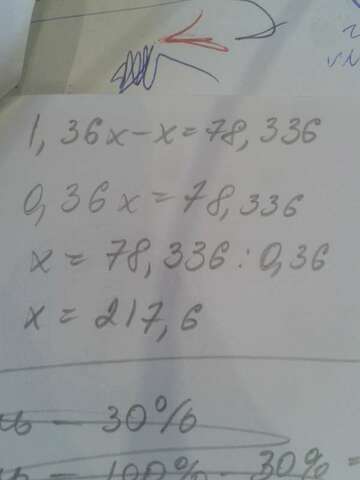 1,36x-x=78,336
0,36x=78,336
x=78,336:0,36
x=217,6
— 30%
— 100% - 30% =